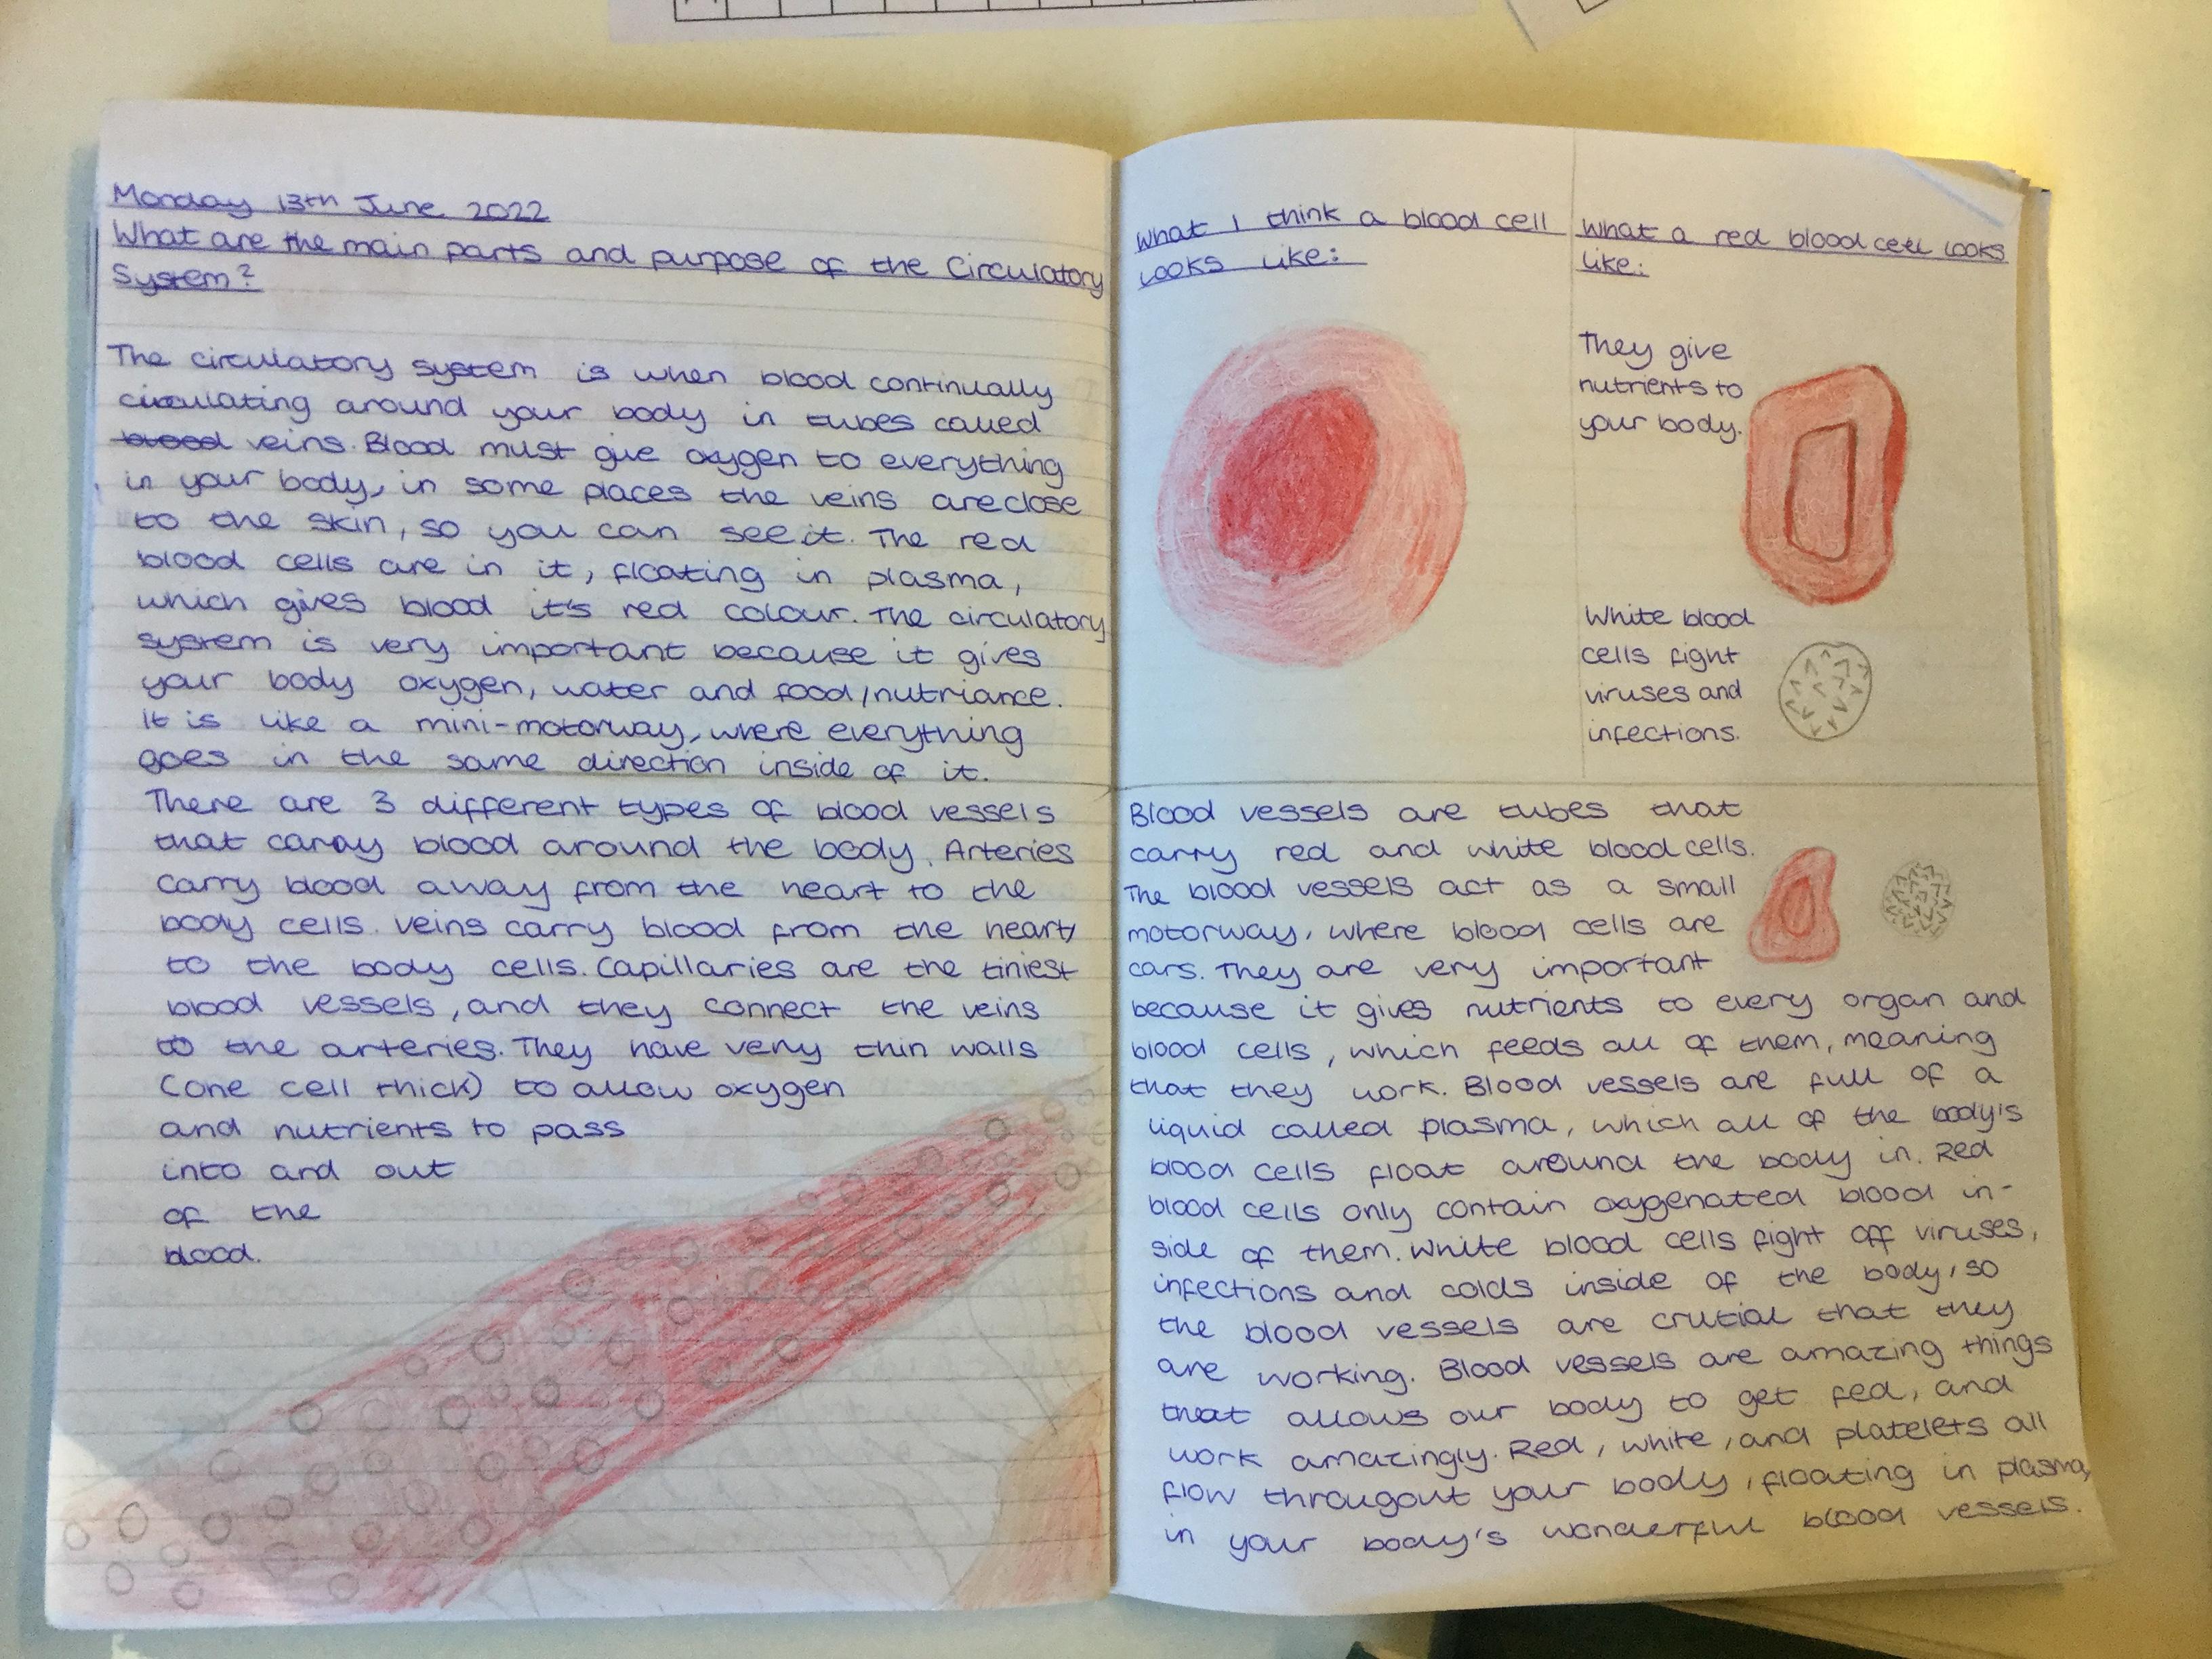 Monday 13th June 2022
What are the main parts and purpose of the Circulatory
System?
The circulatory system is when blood continually
circulating around your body in tubes called
blood veins. Blood must give oxygen to everything
in your body, in some places the veins are close
to the skin, so you can see it. The red
blood cells are in it, floating in plasma,
which gives blood it's red colour. The circulatory
system is very important because it gives
your body oxygen, water and food/nutriance.
It is like a mini-motorway, where everything
goes in the same direction inside of it.
There are 3 different types of blood vessels
that caray blood around the body. Arteries
carry blood away from the heart to the
body cells. Veins carry blood from the heart
to the body cells. Capillaries are the tiniest
blood vessels, and they connect the veins
to the arteries. They have very thin walls
(one cell thick) to allow oxygen
and nutrients to pass
into and out
of the
blood.
What I think a blood cell
looks like:
What a red blood cell looks
like:
They give
nutrients to
your body.
White blood
cells fight
viruses and
infections.
Blood vessels are tubes that
carry red and white blood cells.
The blood vessels act as a small
motorway, where blood cells are
cars. They are very important
because it gives nutrients to every organ and
blood cells, which feeds all of them, meaning
that they work. Blood vessels are full of a
liquid called plasma, which all of the body's
blood cells float around the body in. Red
blood cells only contain oxygenated blood in-
side of them. White blood cells fight off viruses,
infections and colds inside of the body, so
the blood vessels are crutial that they
are working. Blood vessels are amazing things
that allows our body to get fed, and
work amazingly. Red, white, and platelets all
flow througout your body, floating in plasma,
in your body's wonderful blood vessels.